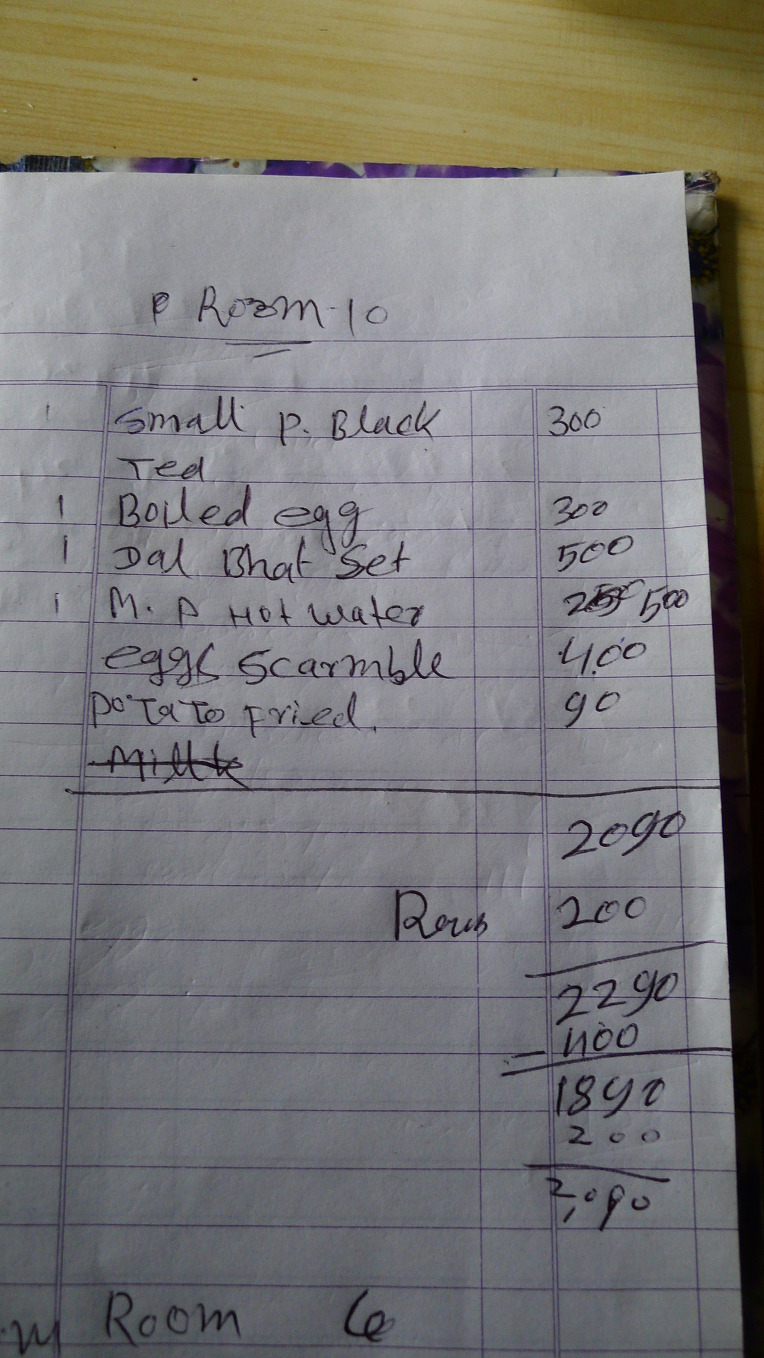 P Room-10
1 Small P. Black 300
Tea
1 Boiled egg 300
1 Dal Bhat Set 500
1 M. P Hot water 500
eggs Scarmble 400
Potato Fried. 90
Millk
2090
200
2290
- 400
1890
200
2,090
Room 6